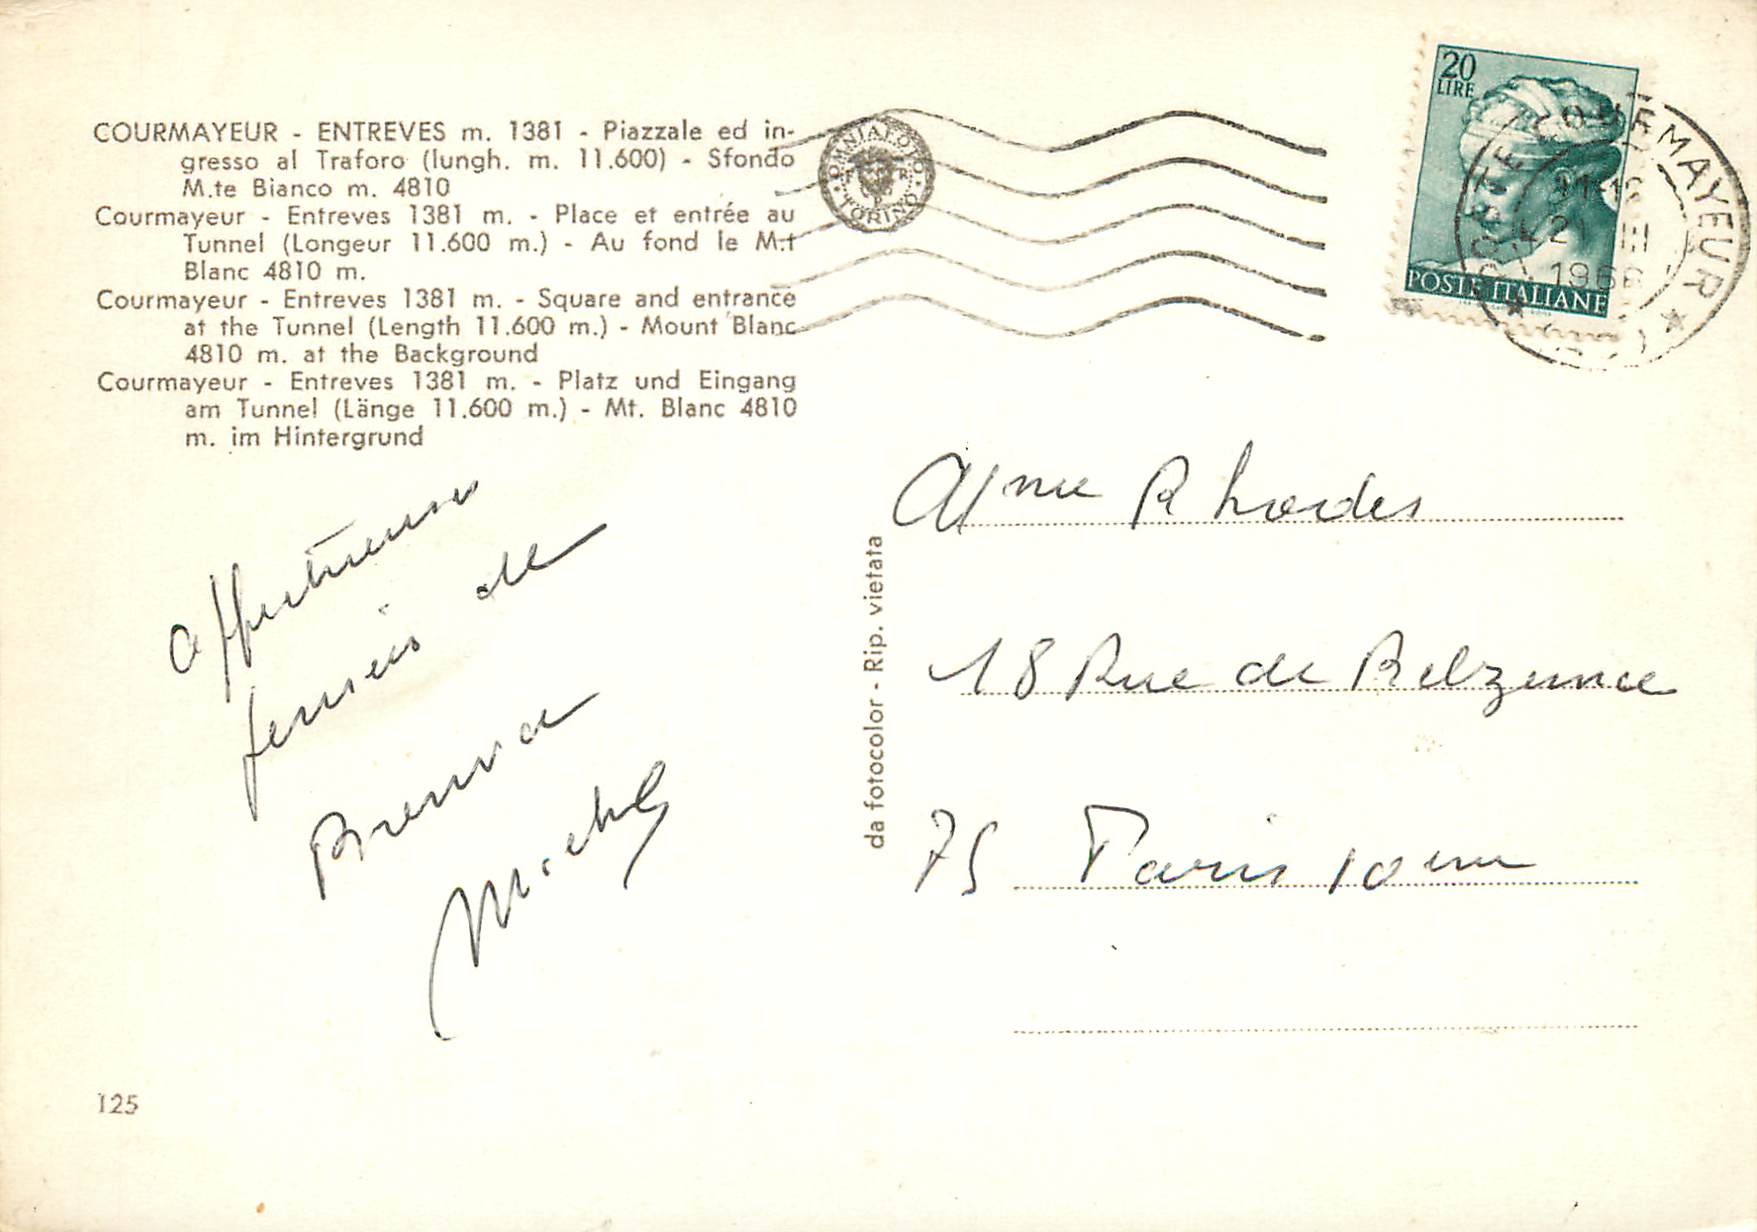 COURMAYEUR - ENTREVES m. 1381 - Piazzale ed in-
gresso al Traforo (lungh. m. 11.600) - Sfondo
M.te Bianco m. 4810
Courmayeur - Entreves 1381 m. - Place et entrée au
Tunnel (Longeur 11.600 m.) - Au fond le M.t
Blanc 4810 m.
Courmayeur - Entreves 1381 m. - Square and entrance
at the Tunnel (Length 11.600 m.) - Mount Blanc
4810 m. at the Background
Courmayeur - Entreves 1381 m. - Platz und Eingang
am Tunnel (Länge 11.600 m.) - Mt. Blanc 4810
m. im Hintergrund
OMNIAFOTO
TORINO
20
LIRE
POSTE ITALIANE
COURMAYEUR
196
Affectueuses
pensées de
Brenva
Michel
da fotocolor - Rip. vietata
Mme Rhodes
18 Rue de Belzunce
75 Paris 10eme
125